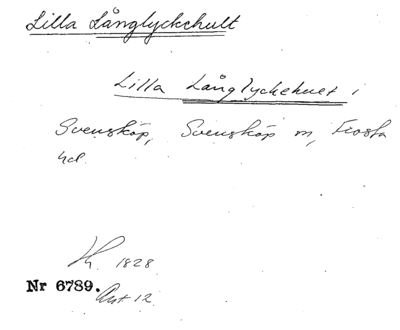 Lilla Långlyckehult
Lilla Långlyckehult i
Svensköp, Svensköp sn, Frosta
hd.
Kh. 1828
Nr 6789. Avt 12